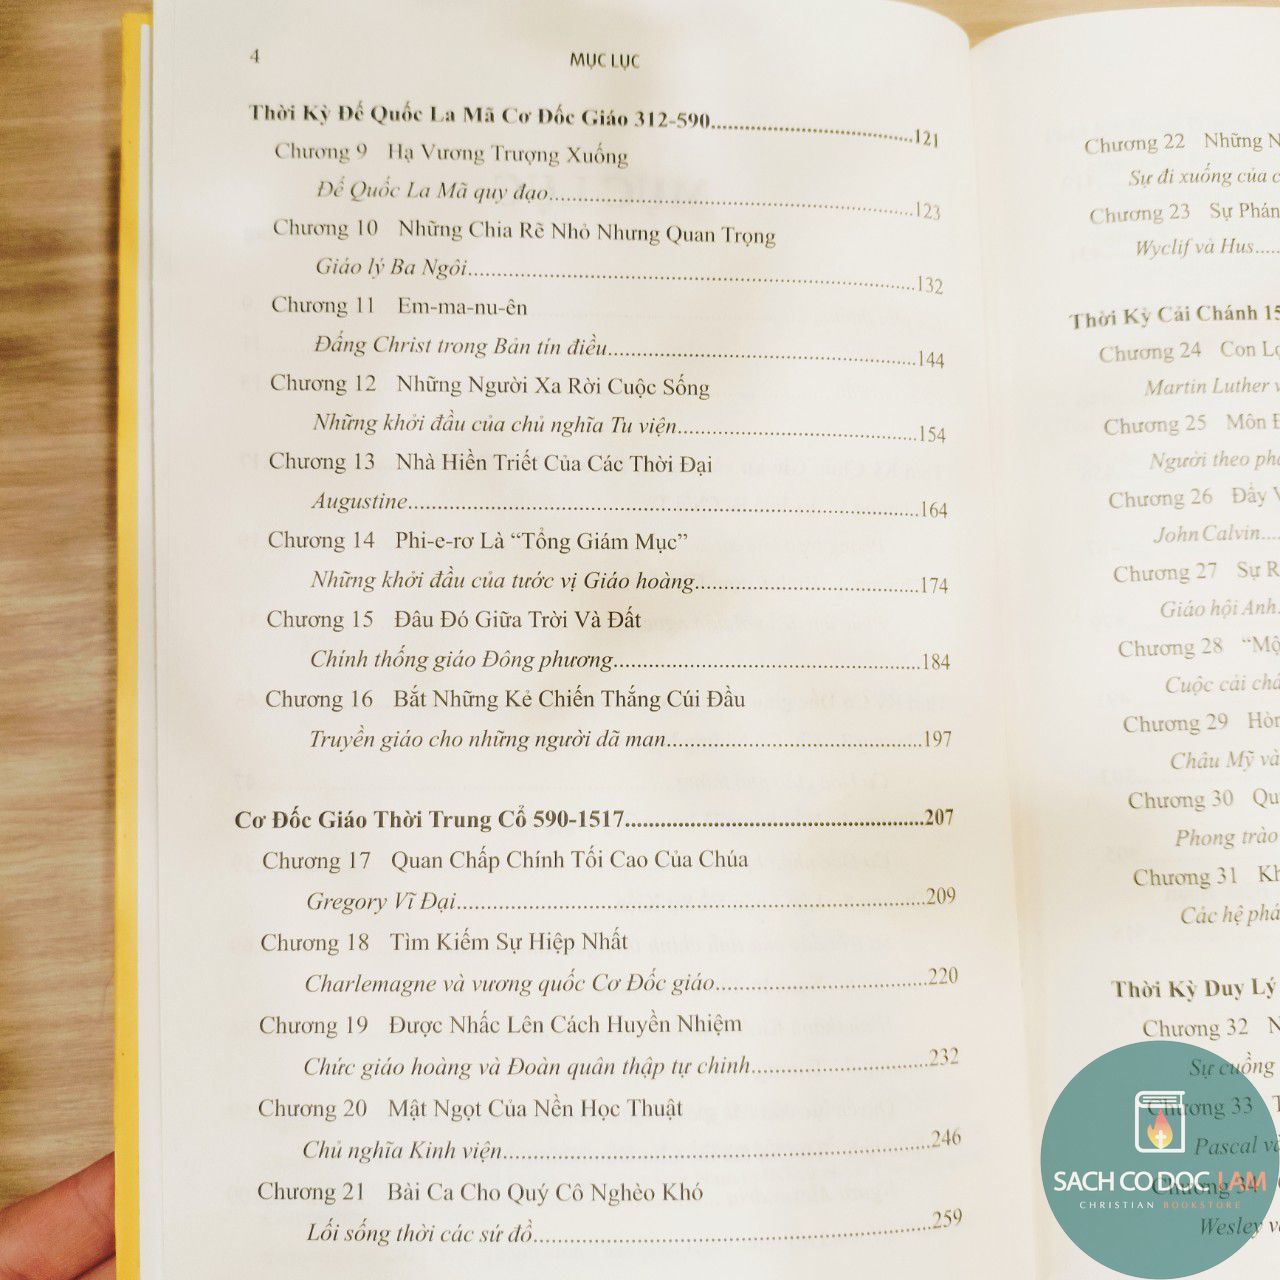 4 MỤC LỤC
Thời Kỳ Đế Quốc La Mã Cơ Đốc Giáo 312-590 121
Chương 9 Hạ Vương Trượng Xuống
Đế Quốc La Mã quy đạo 123
Chương 10 Những Chia Rẽ Nhỏ Nhưng Quan Trọng
Giáo lý Ba Ngôi 132
Chương 11 Em-ma-nu-ên
Đấng Christ trong Bản tín điều 144
Chương 12 Những Người Xa Rời Cuộc Sống
Những khởi đầu của chủ nghĩa Tu viện 154
Chương 13 Nhà Hiền Triết Của Các Thời Đại
Augustine 164
Chương 14 Phi-e-rơ Là “Tổng Giám Mục”
Những khởi đầu của tước vị Giáo hoàng 174
Chương 15 Đâu Đó Giữa Trời Và Đất
Chính thống giáo Đông phương 184
Chương 16 Bắt Những Kẻ Chiến Thắng Cúi Đầu
Truyền giáo cho những người dã man 197
Cơ Đốc Giáo Thời Trung Cổ 590-1517 207
Chương 17 Quan Chấp Chính Tối Cao Của Chúa
Gregory Vĩ Đại 209
Chương 18 Tìm Kiếm Sự Hiệp Nhất
Charlemagne và vương quốc Cơ Đốc giáo 220
Chương 19 Được Nhấc Lên Cách Huyền Nhiệm
Chức giáo hoàng và Đoàn quân thập tự chinh 232
Chương 20 Mật Ngọt Của Nền Học Thuật
Chủ nghĩa Kinh viện 246
Chương 21 Bài Ca Cho Quý Cô Nghèo Khó
Lối sống thời các sứ đồ 259
Chương 22 Những
Sự đi xuống của
Chương 23 Sự Phán
Wyclif và Hus
Thời Kỳ Cải Chánh
Chương 24 Con
Martin Luther
Chương 25 Môn
Người theo
Chương 26 Đầy
John Calvin
Chương 27 Sự
Giáo hội Anh
Chương 28
Cuộc cải
Chương 29
Châu Mỹ và
Chương 30
Phong trào
Chương 31
Các hệ phái
Thời Kỳ Duy Lý
Chương 32
Sự cuồng
Chương 33
Pascal và
Chương 34
Wesley
SACH CO DOC LAM
CHRISTIAN BOOKSTORE